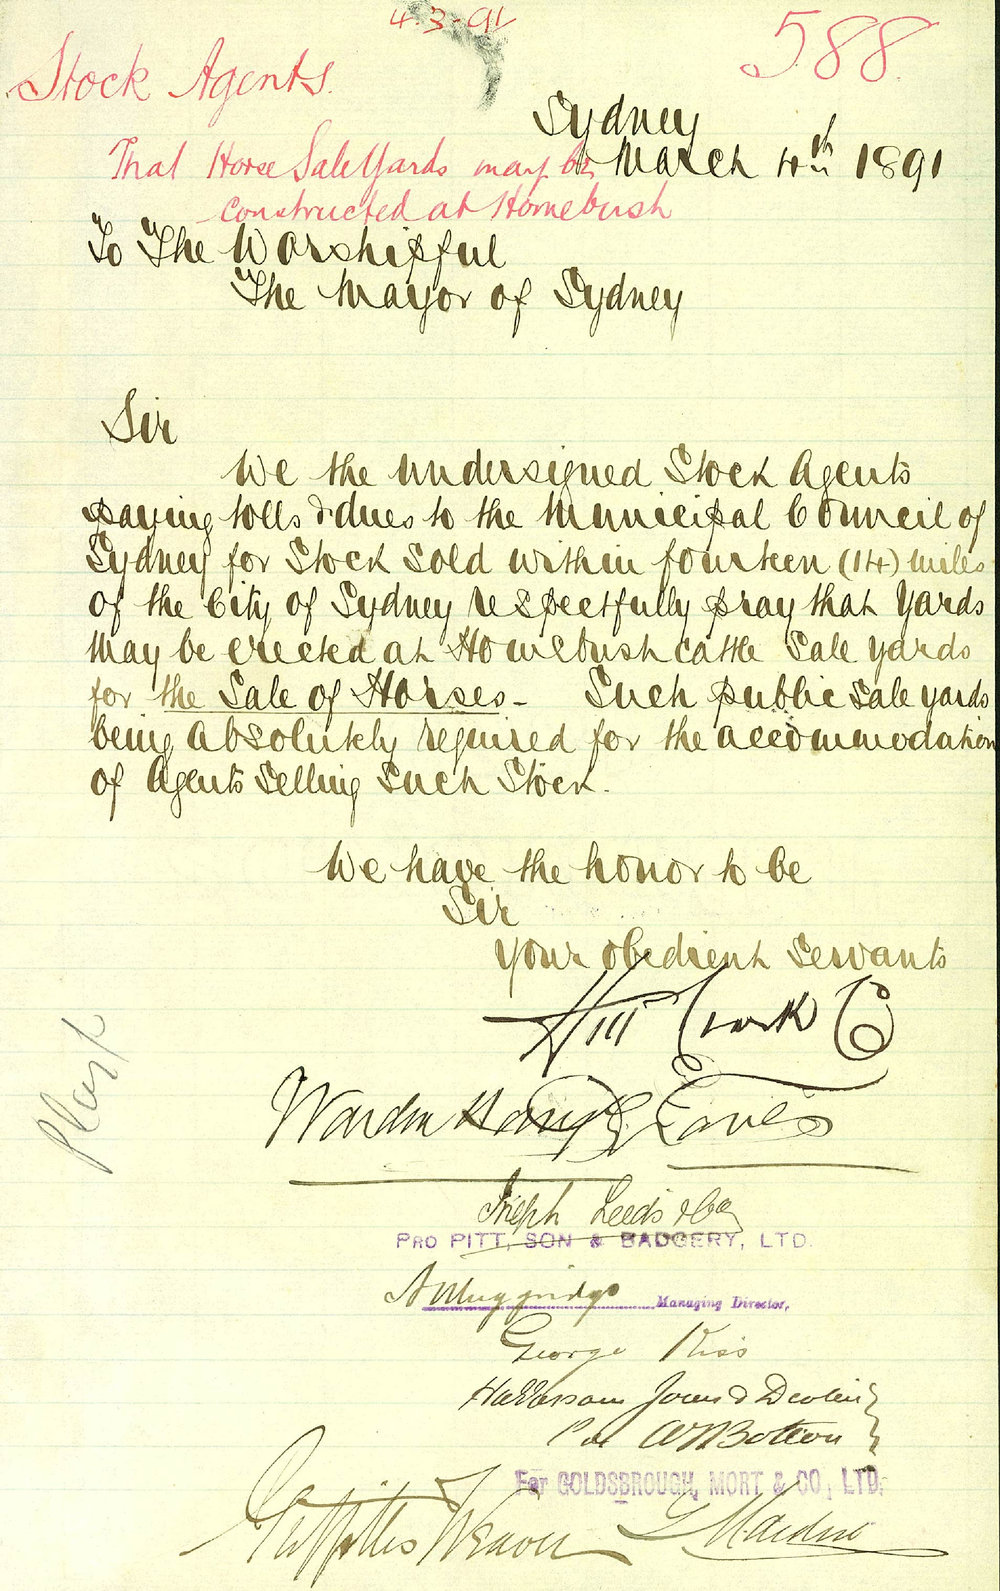 4.3.91
588.
Stock Agents.
That Horse Sale Yards may be
constructed at Homebush
Sydney
March 4th 1891
To The Worshipful
The Mayor of Sydney
Sir
We the undersigned Stock Agents
paying tolls & dues to the Municipal Council of
Sydney for Stock Sold within fourteen (14) miles
of the City of Sydney respectfully pray that Yards
May be erected at Homebush cattle Sale Yards
for the Sale of Horses - Such public Sale yards
being absolutely required for the accommodation
of Agents Selling Such Stock.
We have the honor to be
Sir
Your Obedient Servants
Hill Clark & Co
Warden Harry Graves
Joseph Leeds & Co
PRO PITT, SON & BADGERY, LTD.
A Muggridge Managing Director,
George Kiss
Jones & Devlin
W Bolton
For GOLDSBROUGH, MORT & CO, LTD.
Griffiths Weaver
Maiden